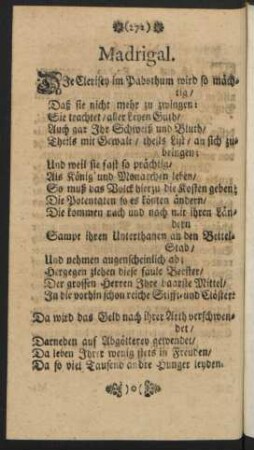 (272)
Madrigal.
DIe Clerisey im Pabsthum wird so mäch-
tig/
Daß sie nicht mehr zu zwingen:
Sie trachtet/ aller Leyen Guth/
Auch gar Ihr Schweiß und Bluth/
Theils mit Gewalt/ theils List/ an sich zu-
bringen:
Und weil sie fast so prächtig/
Als König und Monarchen leben/
So muß das Volck hierzu die Kosten geben:
Die Potentaten so es könten ändern/
Die kommen nach und nach mit ihren Län-
dern
Sampt ihren Unterthanen an den Bettel-
Stab/
Und nehmen augenscheinlich ab:
Hergegen ziehen diese faule Geister/
Der grossen Herren Ihre baarste Mittel/
In die vorhin schon reiche Stifft- und Clöster:
Da wird das Geld nach ihrer Arth verschwen-
det/
Darneben auf Abgötterey gewendet/
Da leben Ihrer wenig stets in Freuden/
Da so viel Tausend andre Hunger leyden.